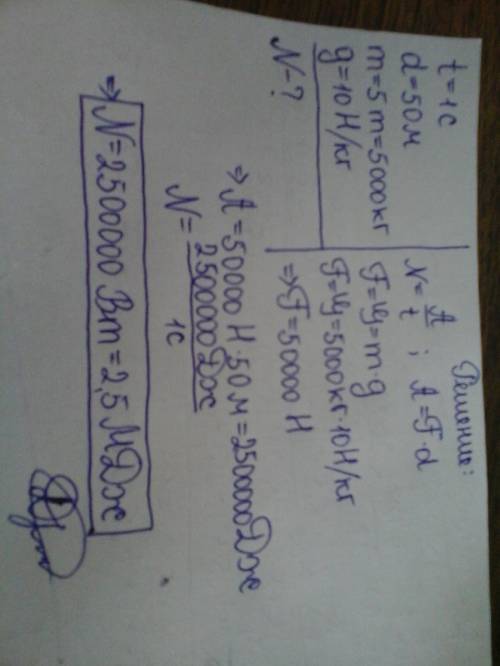 t=1с
d=50м
m=5т=5000кг
g=10Н/кг
N-?
Решение:
N=A/t ; A=F·d
F=Fg=m·g
F=Fg=5000кг·10Н/кг
⇒F=50000 Н
⇒ A=50000 Н·50м=2500000Дж
N=2500000Дж/1с
⇒ N=2500000 Вт=2,5 МДж